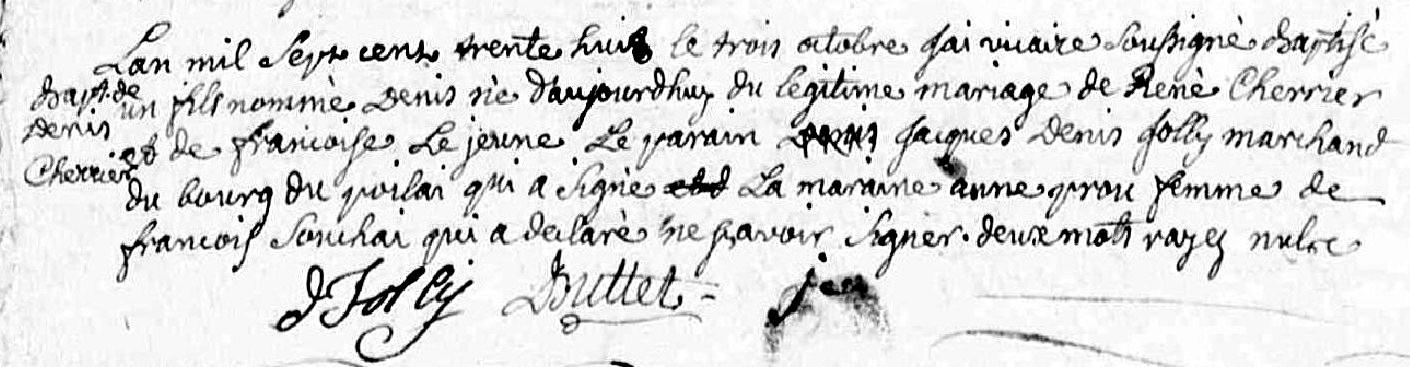 Lan mil sept cent trente huit le trois octobre jai vicaire soussigné baptisé
bapt. de
Denis
Cherrier
un fils nommé Denis né daujourdhuy du legitime mariage de René Cherrier
et de francoise Le jeune Le parain Denis Jacques Denis Jolly marchand
du bourg du poilai qui a signé et d La maraine anne prou femme de
francois Souchai qui a declaré ne scavoir signer. deux mots rayez nulle
d Jolly Buttet